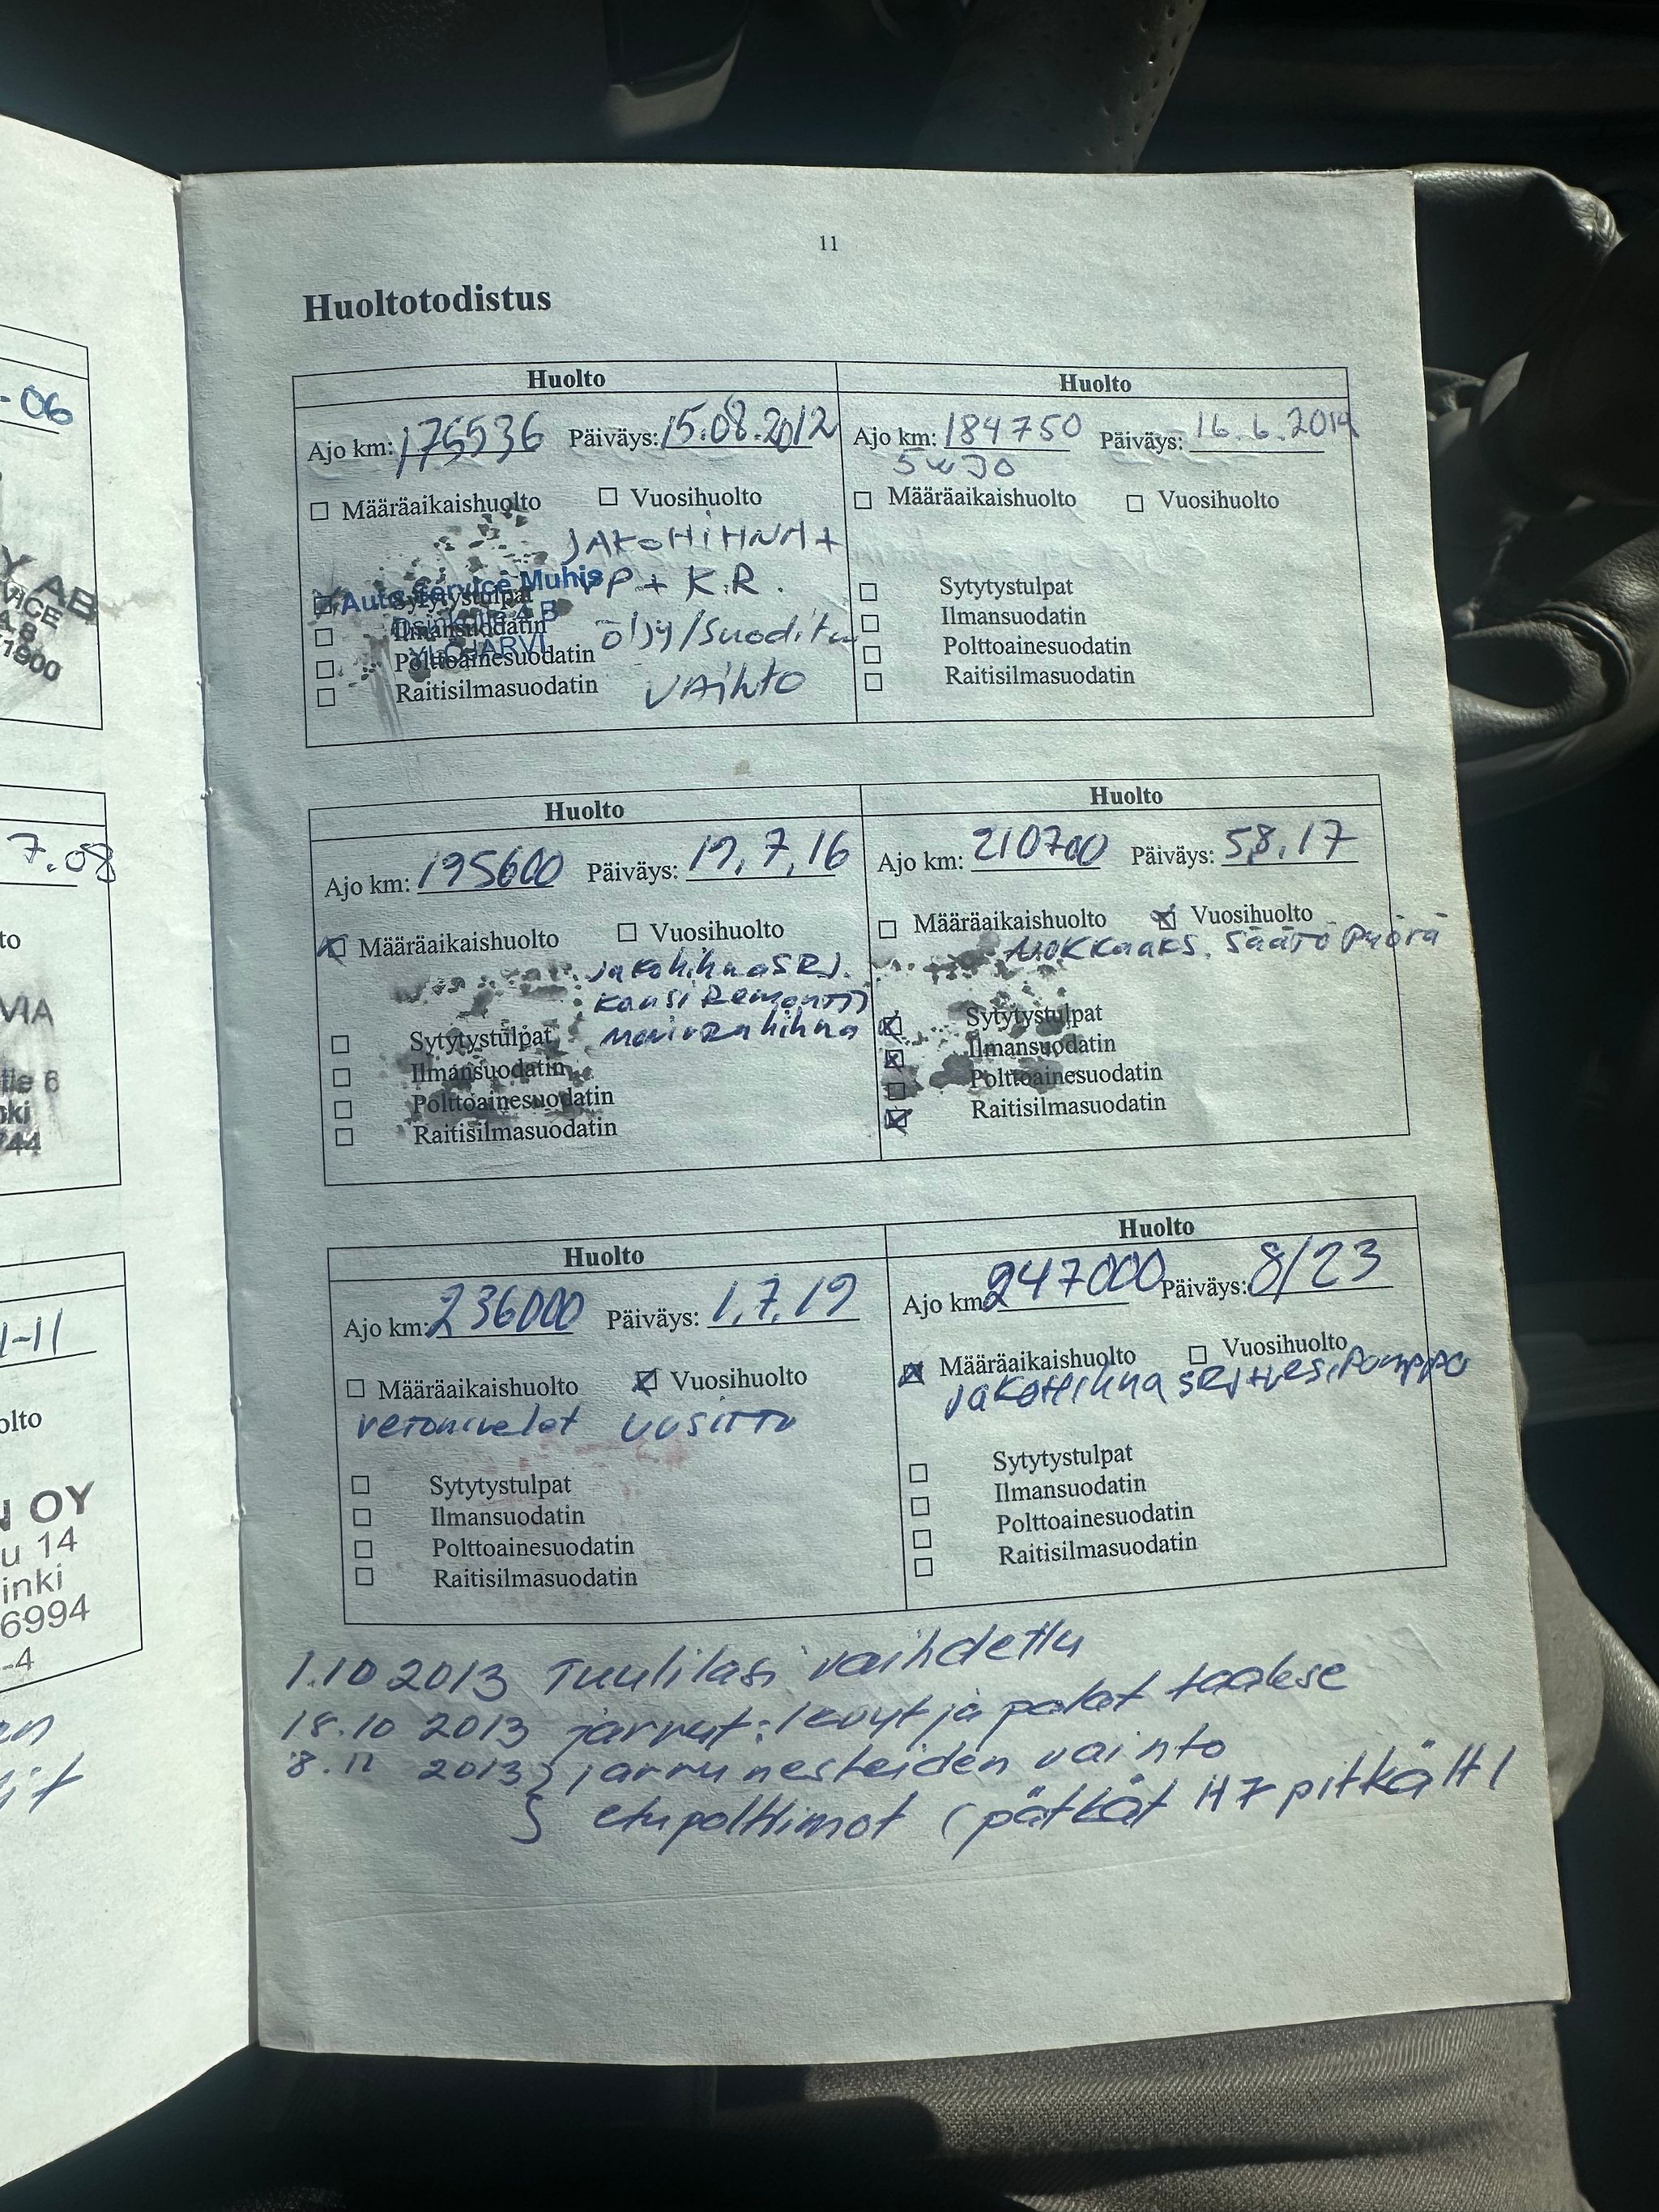 11
Huoltotodistus
Huolto
Ajo km: 175536 Päiväys: 15.08.2012
Määräaikaishuolto Vuosihuolto
JAKOHIHNA +
VP + K.R.
öljy/Suoditn
VAihto
Auto Service Muhis
YLÖJÄRVI
Sytytystulpat
Ilmansuodatin
Polttoainesuodatin
Raitisilmasuodatin
Huolto
Ajo km: 184750 Päiväys: 16.6.2014
5w30
Määräaikaishuolto Vuosihuolto
Sytytystulpat
Ilmansuodatin
Polttoainesuodatin
Raitisilmasuodatin
Huolto
Ajo km: 195600 Päiväys: 19.7.16
Määräaikaishuolto Vuosihuolto
jakohihna SRJ.
kansi Remontti
moniurahihna
Sytytystulpat
Ilmansuodatin
Polttoainesuodatin
Raitisilmasuodatin
Huolto
Ajo km: 210700 Päiväys: 5.8.17
Määräaikaishuolto Vuosihuolto
NokKaaks. Säätö Pyörä
Sytytystulpat
Ilmansuodatin
Polttoainesuodatin
Raitisilmasuodatin
Huolto
Ajo km: 236000 Päiväys: 1.7.19
Määräaikaishuolto Vuosihuolto
vetonivelet UUSITTU
Sytytystulpat
Ilmansuodatin
Polttoainesuodatin
Raitisilmasuodatin
Huolto
Ajo km: 247000 Päiväys: 8/23
Määräaikaishuolto Vuosihuolto
jakoHihna SRJ+vesiPumppu
Sytytystulpat
Ilmansuodatin
Polttoainesuodatin
Raitisilmasuodatin
1.10 2013 Tuulilasi vaihdettu
18.10 2013 jarrut: levyt ja palat taakse
8.11 2013 } jarrunesteiden vaihto
} etupolttimot (pätkät H7 pitkät H1
-06
Y AB
VICE
A 8
1900
7.08
to
VIA
lle 6
ki
744
1-11
olto
N OY
u 14
inki
6994
-4